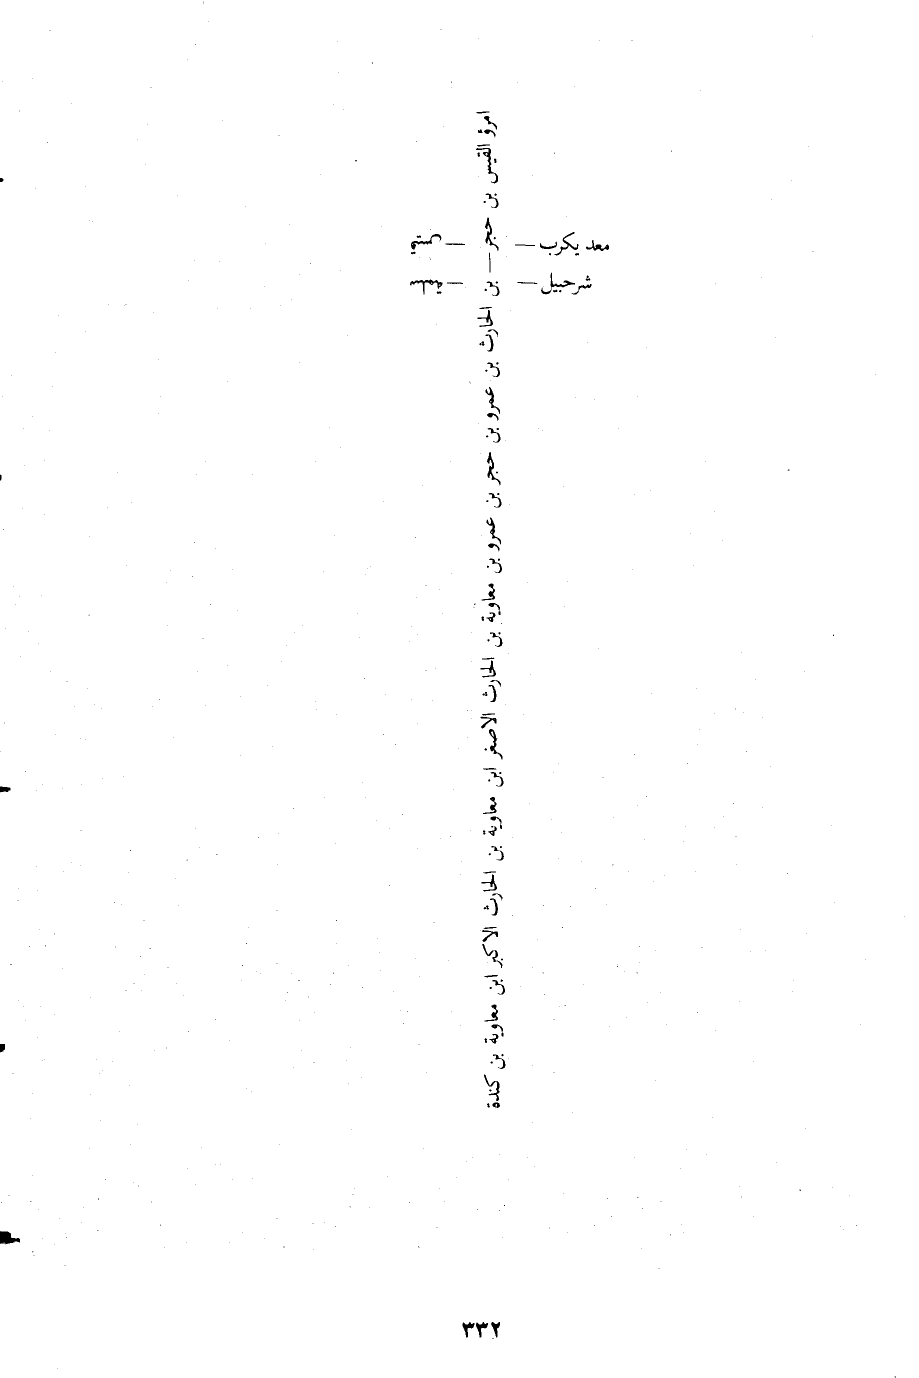 امرؤ القيس بن حجر — بن الحارث بن عمرو بن حجر بن عمرو بن معاوية بن الحارث الاصغر ابن معاوية بن الحارث الاكبر ابن معاوية بن كندة
معد يكرب —
— قيس
شرحبيل —
— سلمة
٣٣٢